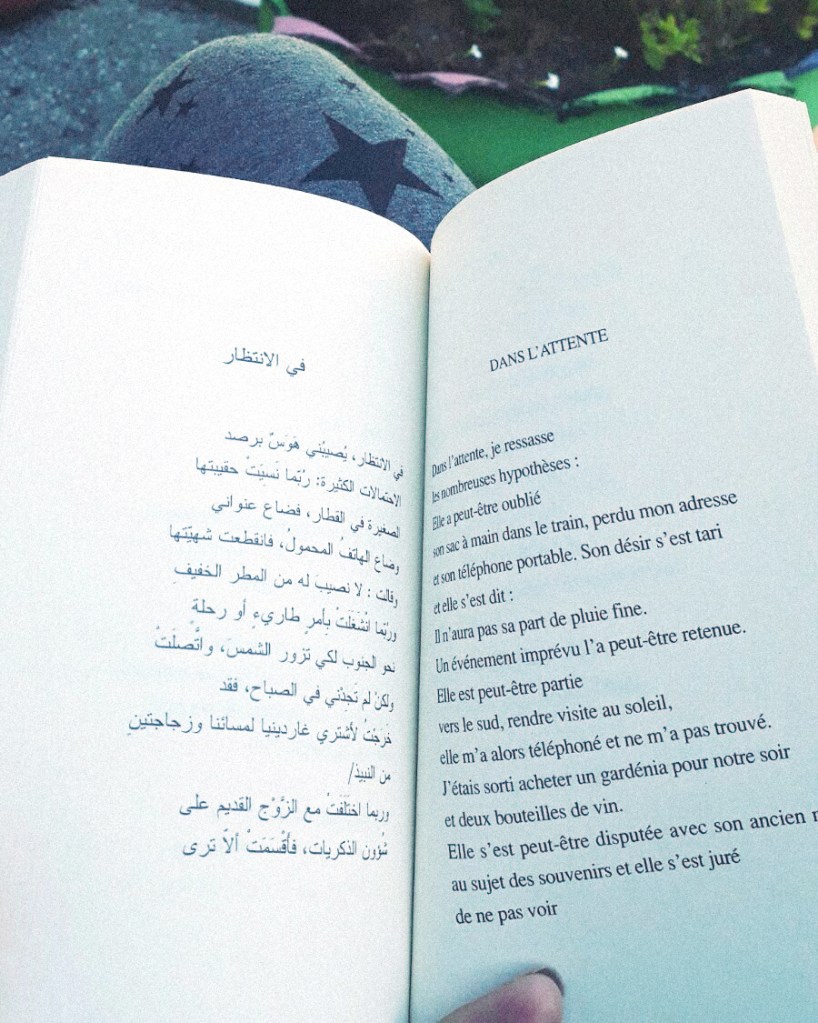 في الانتظار
في الانتظار، يُصيبُني هَوَسٌ برصد
الاحتمالات الكثيرة: رُبّما نَسيَتْ حقيبتها
الصغيرة في القطار، فضاع عنواني
وضاع الهاتفُ المحمولُ، فانقطعت شهيّتها
وقالت : لا نصيبَ له من المطر الخفيفِ
وربّما انْشَغَلَتْ بِأمرٍ طاريءٍ أو رحلة
نحو الجنوب لكي تزور الشمسَ، واتَّصلَتْ
ولكنْ لم تَجِدْني في الصباح، فقد
خَرجْتُ لأشتري غاردينيا لمسائنا وزجاجتينِ
من النبيذ/
وربما اختَلَفَتْ مع الزَّوْج القديم على
شُؤون الذكريات، فأَقْسَمَتْ ألاّ ترى
DANS L'ATTENTE
Dans l'attente, je ressasse
les nombreuses hypothèses :
Elle a peut-être oublié
son sac à main dans le train, perdu mon adresse
et son téléphone portable. Son désir s'est tari
et elle s'est dit :
Il n'aura pas sa part de pluie fine.
Un événement imprévu l'a peut-être retenue.
Elle est peut-être partie
vers le sud, rendre visite au soleil,
elle m'a alors téléphoné et ne m'a pas trouvé.
J'étais sorti acheter un gardénia pour notre soir
et deux bouteilles de vin.
Elle s'est peut-être disputée avec son ancien
au sujet des souvenirs et elle s'est juré
de ne pas voir